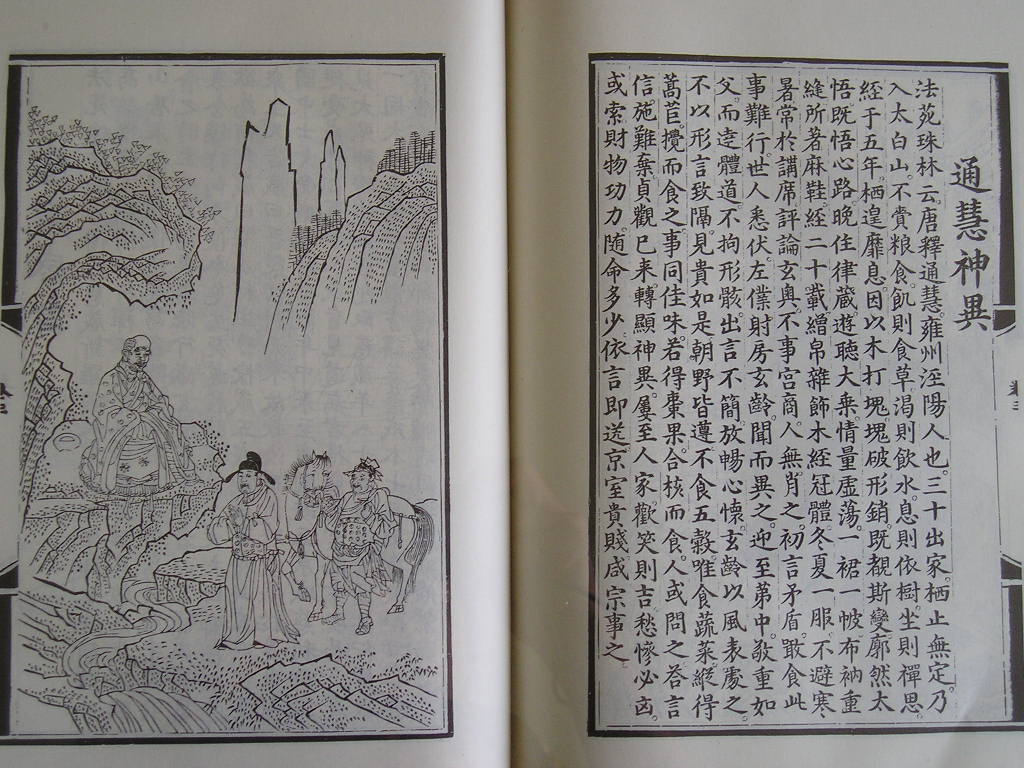 通慧神異
法苑珠林云唐釋通慧雍州涇陽人也三十出家栖止無定乃
入太白山不賫粮食飢則食草渴則飲水息則依樹坐則禪思
經于五年栖遑靡息因以木打塊塊破形銷既覩斯變廓然大
悟既悟心路晚住律藏遊聽大乘情量虛蕩一裙一帔布衲重
縫所著麻鞋經二十載繒帛雜飾未經冠體冬夏一服不避寒
暑常於講席評論玄奧不事宮商人無肖之初言矛盾敢食此
事難行世人悉伏左僕射房玄齡聞而異之迎至第中敬重如
父而達體道不拘形骸出言不簡放暢心懷玄齡以風表處之
不以形言致隔見貴如是朝野皆遵不食五穀唯食蔬菜縱得
蒿苣攪而食之事同佳味若得棗果合核而食人或問之答言
信施難棄貞觀已來轉顯神異屢至人家歡笑則吉愁慘必凶
或索財物功力隨命多少依言即送京室貴賤咸宗事之